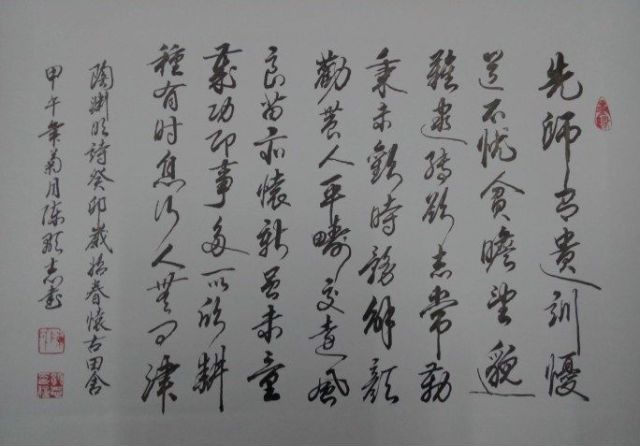 先師有遺訓憂
道不忧貧瞻望邈
難逮轉欲志常勤
秉耒歡時務解顏
勸農人平疇交遠風
良苗亦懷新虽未量
歲功即事多所欣耕
種有时息行人無问津
陶渊明詩癸卯歲始春懷古田舍
甲午年菊月陳志書